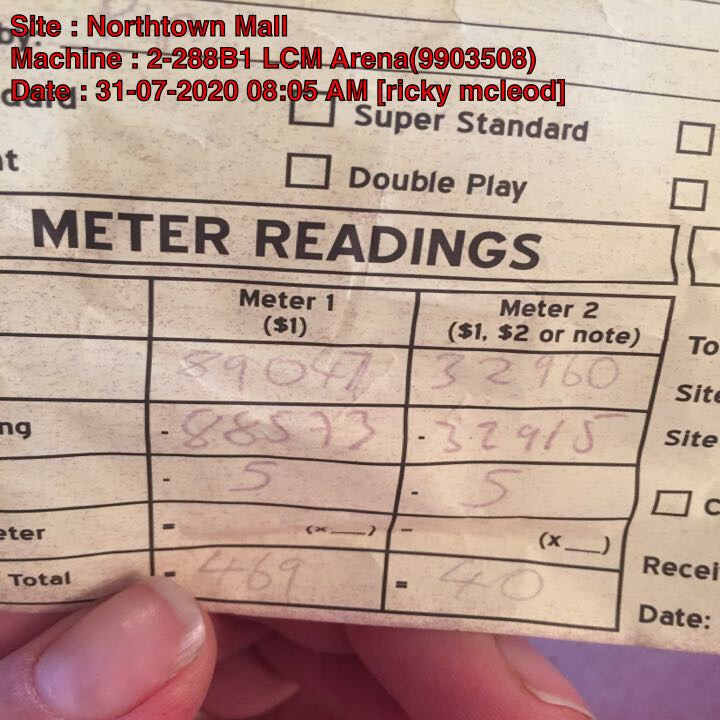 Site : Northtown Mall
Machine : 2-288B1 LCM Arena(9903508)
Date : 31-07-2020 08:05 AM [ricky mcleod]
Super Standard
Double Play
METER READINGS
Meter 1 Meter 2
($1) ($1, $2 or note) To
89047 32960 Site
ng - 88573 - 32915 Site
- 5 - 5
eter = (x ___) - (x ___) Recei
Total = 469 = 40 Date: